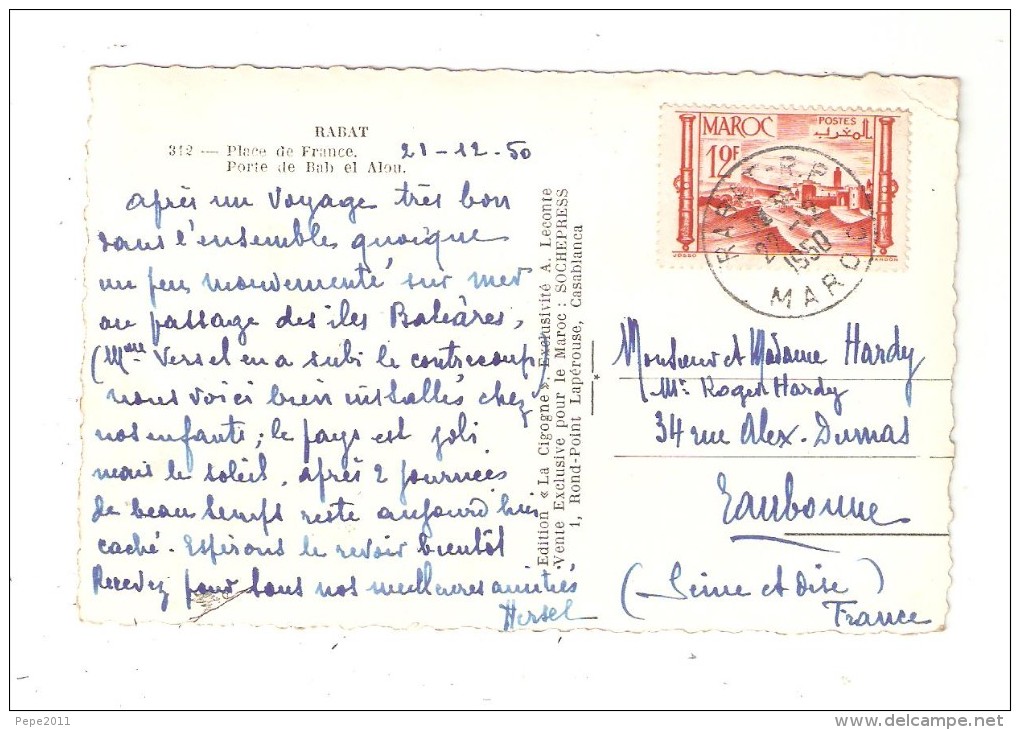 RABAT
312 — Place de France.
Porte de Bab el Alou.
21-12-50
après un voyage très bon
dans l'ensembles quoique
un peu mouvementé sur mer
au passage des iles Baléares,
(Mme Versel en a subi le contrecoup)
nous voici bien installés chez
nos enfants; le pays est joli
mais le soleil, après 2 journées
de beau temps reste aujourd'hui
caché. Espérons le revoir bientôt
Recevez pour tous nos meilleures amitiés
Edition « La Cigogne ». Exclusivité A. Leconte
Vente Exclusive pour le Maroc : SOCHEPRESS
1, Rond-Point Lapérouse, Casablanca
MAROC
POSTES
المغرب
12F
RABAT-R.P
1950
MAROC
Monsieur et Madame Hardy
Mr Roger Hardy
34 rue Alex. Dumas
Eaubonne
(Seine et Oise)
France
Pepe2011
www.delcampe.net